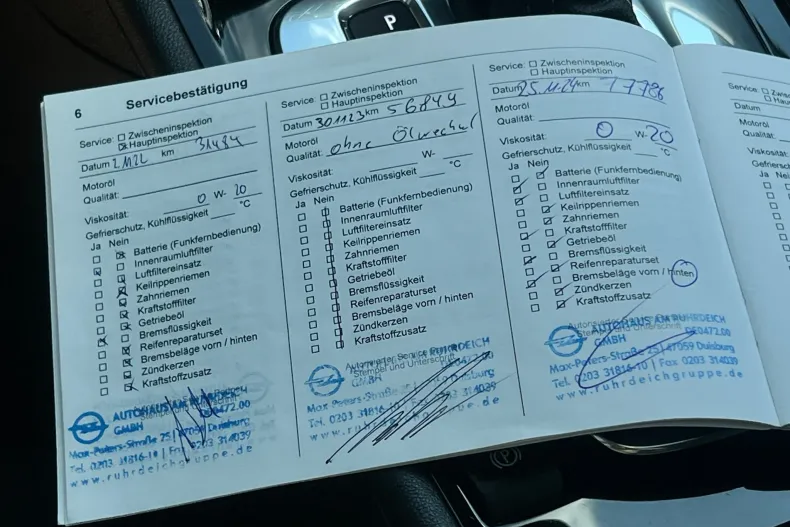 P
6 Servicebestätigung
Service: Zwischeninspektion
Hauptinspektion
Datum 2.11.22 km 31484
Motoröl
Qualität:
Viskosität: 0 W- 20
Gefrierschutz, Kühlflüssigkeit °C
Ja Nein
Batterie (Funkfernbedienung)
Innenraumluftfilter
Luftfiltereinsatz
Keilrippenriemen
Zahnriemen
Kraftstofffilter
Getriebeöl
Bremsflüssigkeit
Reifenreparaturset
Bremsbeläge vorn / hinten
Zündkerzen
Kraftstoffzusatz
AUTOHAUS AM RUHRDEICH
GMBH
Max-Peters-Straße 25 | 47059 Duisburg
Tel. 0203 31816-10 | Fax 0203 314039
www.ruhrdeichgruppe.de
Service: Zwischeninspektion
Hauptinspektion
Datum 30.11.23 km 56849
Motoröl
Qualität: ohne Ölwechsel
Viskosität: W-
Gefrierschutz, Kühlflüssigkeit °C
Ja Nein
Batterie (Funkfernbedienung)
Innenraumluftfilter
Luftfiltereinsatz
Keilrippenriemen
Zahnriemen
Kraftstofffilter
Getriebeöl
Bremsflüssigkeit
Reifenreparaturset
Bremsbeläge vorn / hinten
Zündkerzen
Kraftstoffzusatz
Stempel und Unterschrift
GMBH
Tel. 0203 31816-10 | Fax 0203 314039
www.ruhrdeichgruppe.de
Service: Zwischeninspektion
Hauptinspektion
Datum 25.11.24 km 77786
Motoröl
Qualität:
Viskosität: 0 W- 20
Gefrierschutz, Kühlflüssigkeit °C
Ja Nein
Batterie (Funkfernbedienung)
Innenraumluftfilter
Luftfiltereinsatz
Keilrippenriemen
Zahnriemen
Kraftstofffilter
Getriebeöl
Bremsflüssigkeit
Reifenreparaturset
Bremsbeläge vorn / hinten
Zündkerzen
Kraftstoffzusatz
AUTOHAUS AM RUHRDEICH
GMBH DE0472.00
Max-Peters-Straße 25 | 47059 Duisburg
Tel. 0203 31816-10 | Fax 0203 314039
www.ruhrdeichgruppe.de
Service:
Datum
Motoröl
Qualität:
Viskosität:
Ja Nein